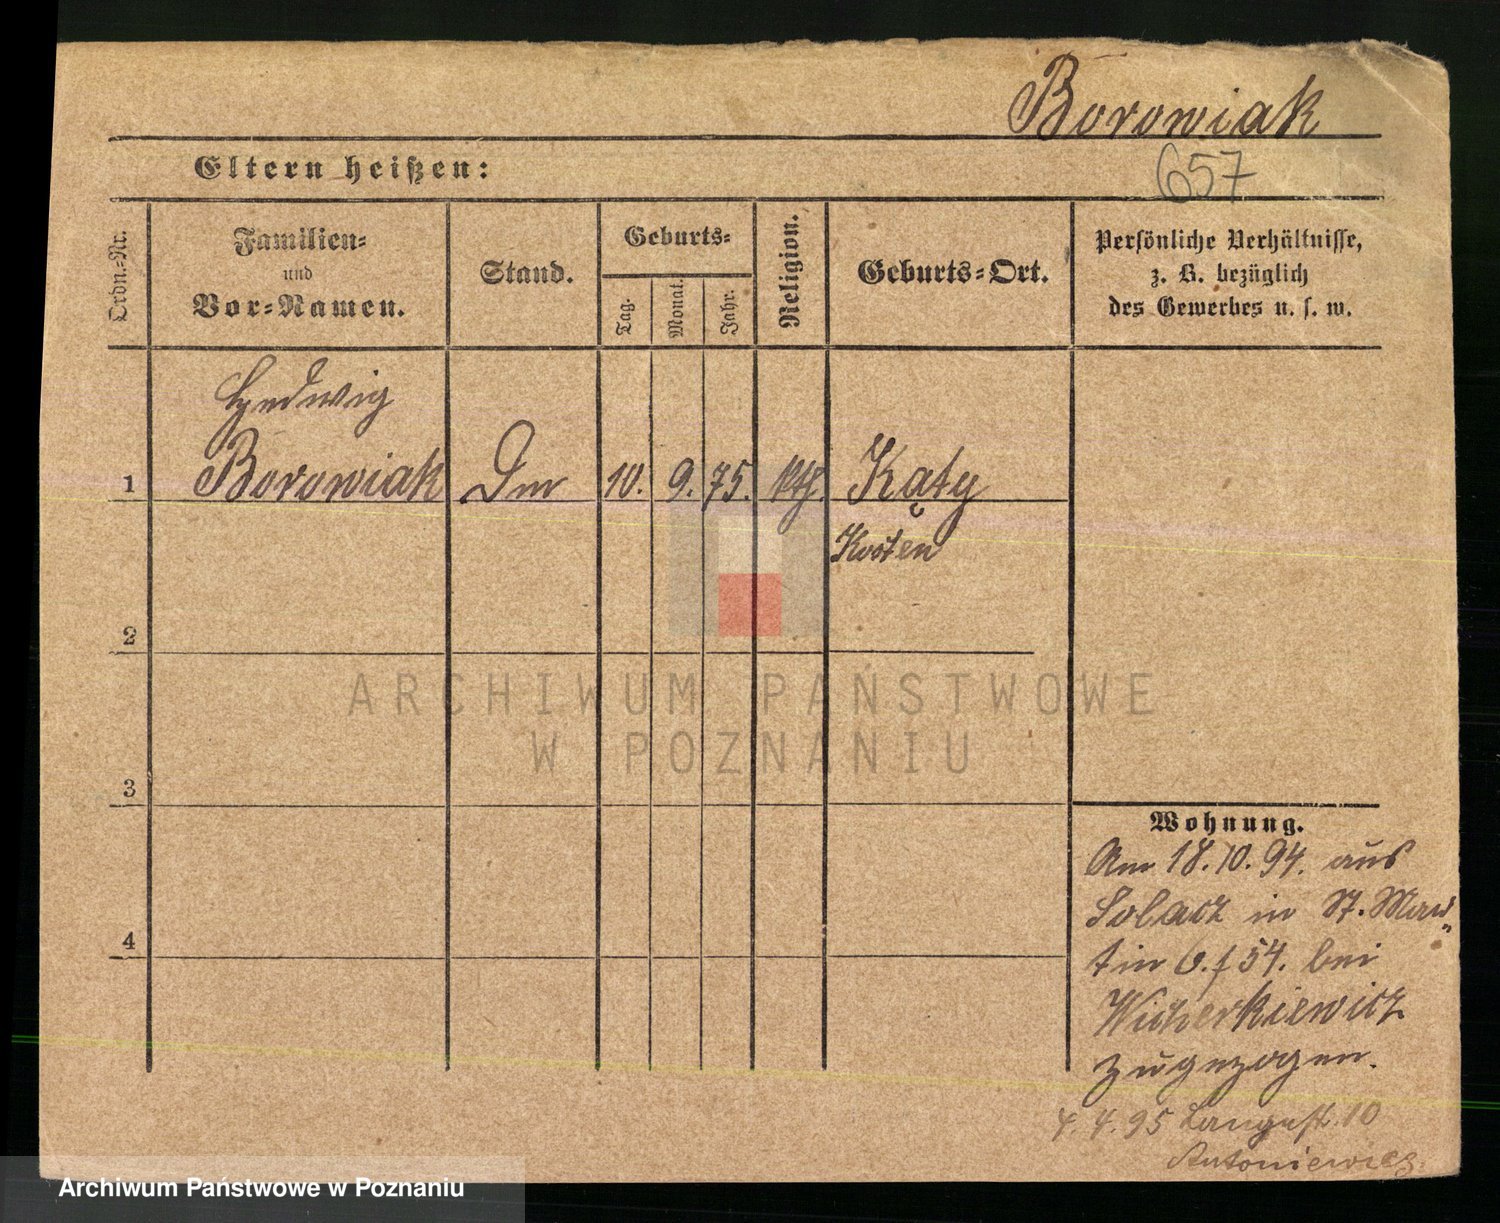 Borowiak
657
Eltern heißen:
Ordn.-Nr.
Familien-
und
Vor-Namen.
Stand.
Geburts-
Tag.
Monat.
Jahr.
Religion.
Geburts-Ort.
Persönliche Verhältnisse,
z. B. bezüglich
des Gewerbes u. s. w.
Hedwig
1 Borowiak 10. 9. 75. kth. Kąty
Kosten
2
ARCHIWUM PAŃSTWOWE
W POZNANIU
3
Wohnung.
Am 18.10.94. aus
Solacz in St. Mar„
4
tin 54. bei
Wicherkiewicz
zugezogen.
4. 4. 95 Langestr. 10
Antoniewicz
Archiwum Państwowe w Poznaniu